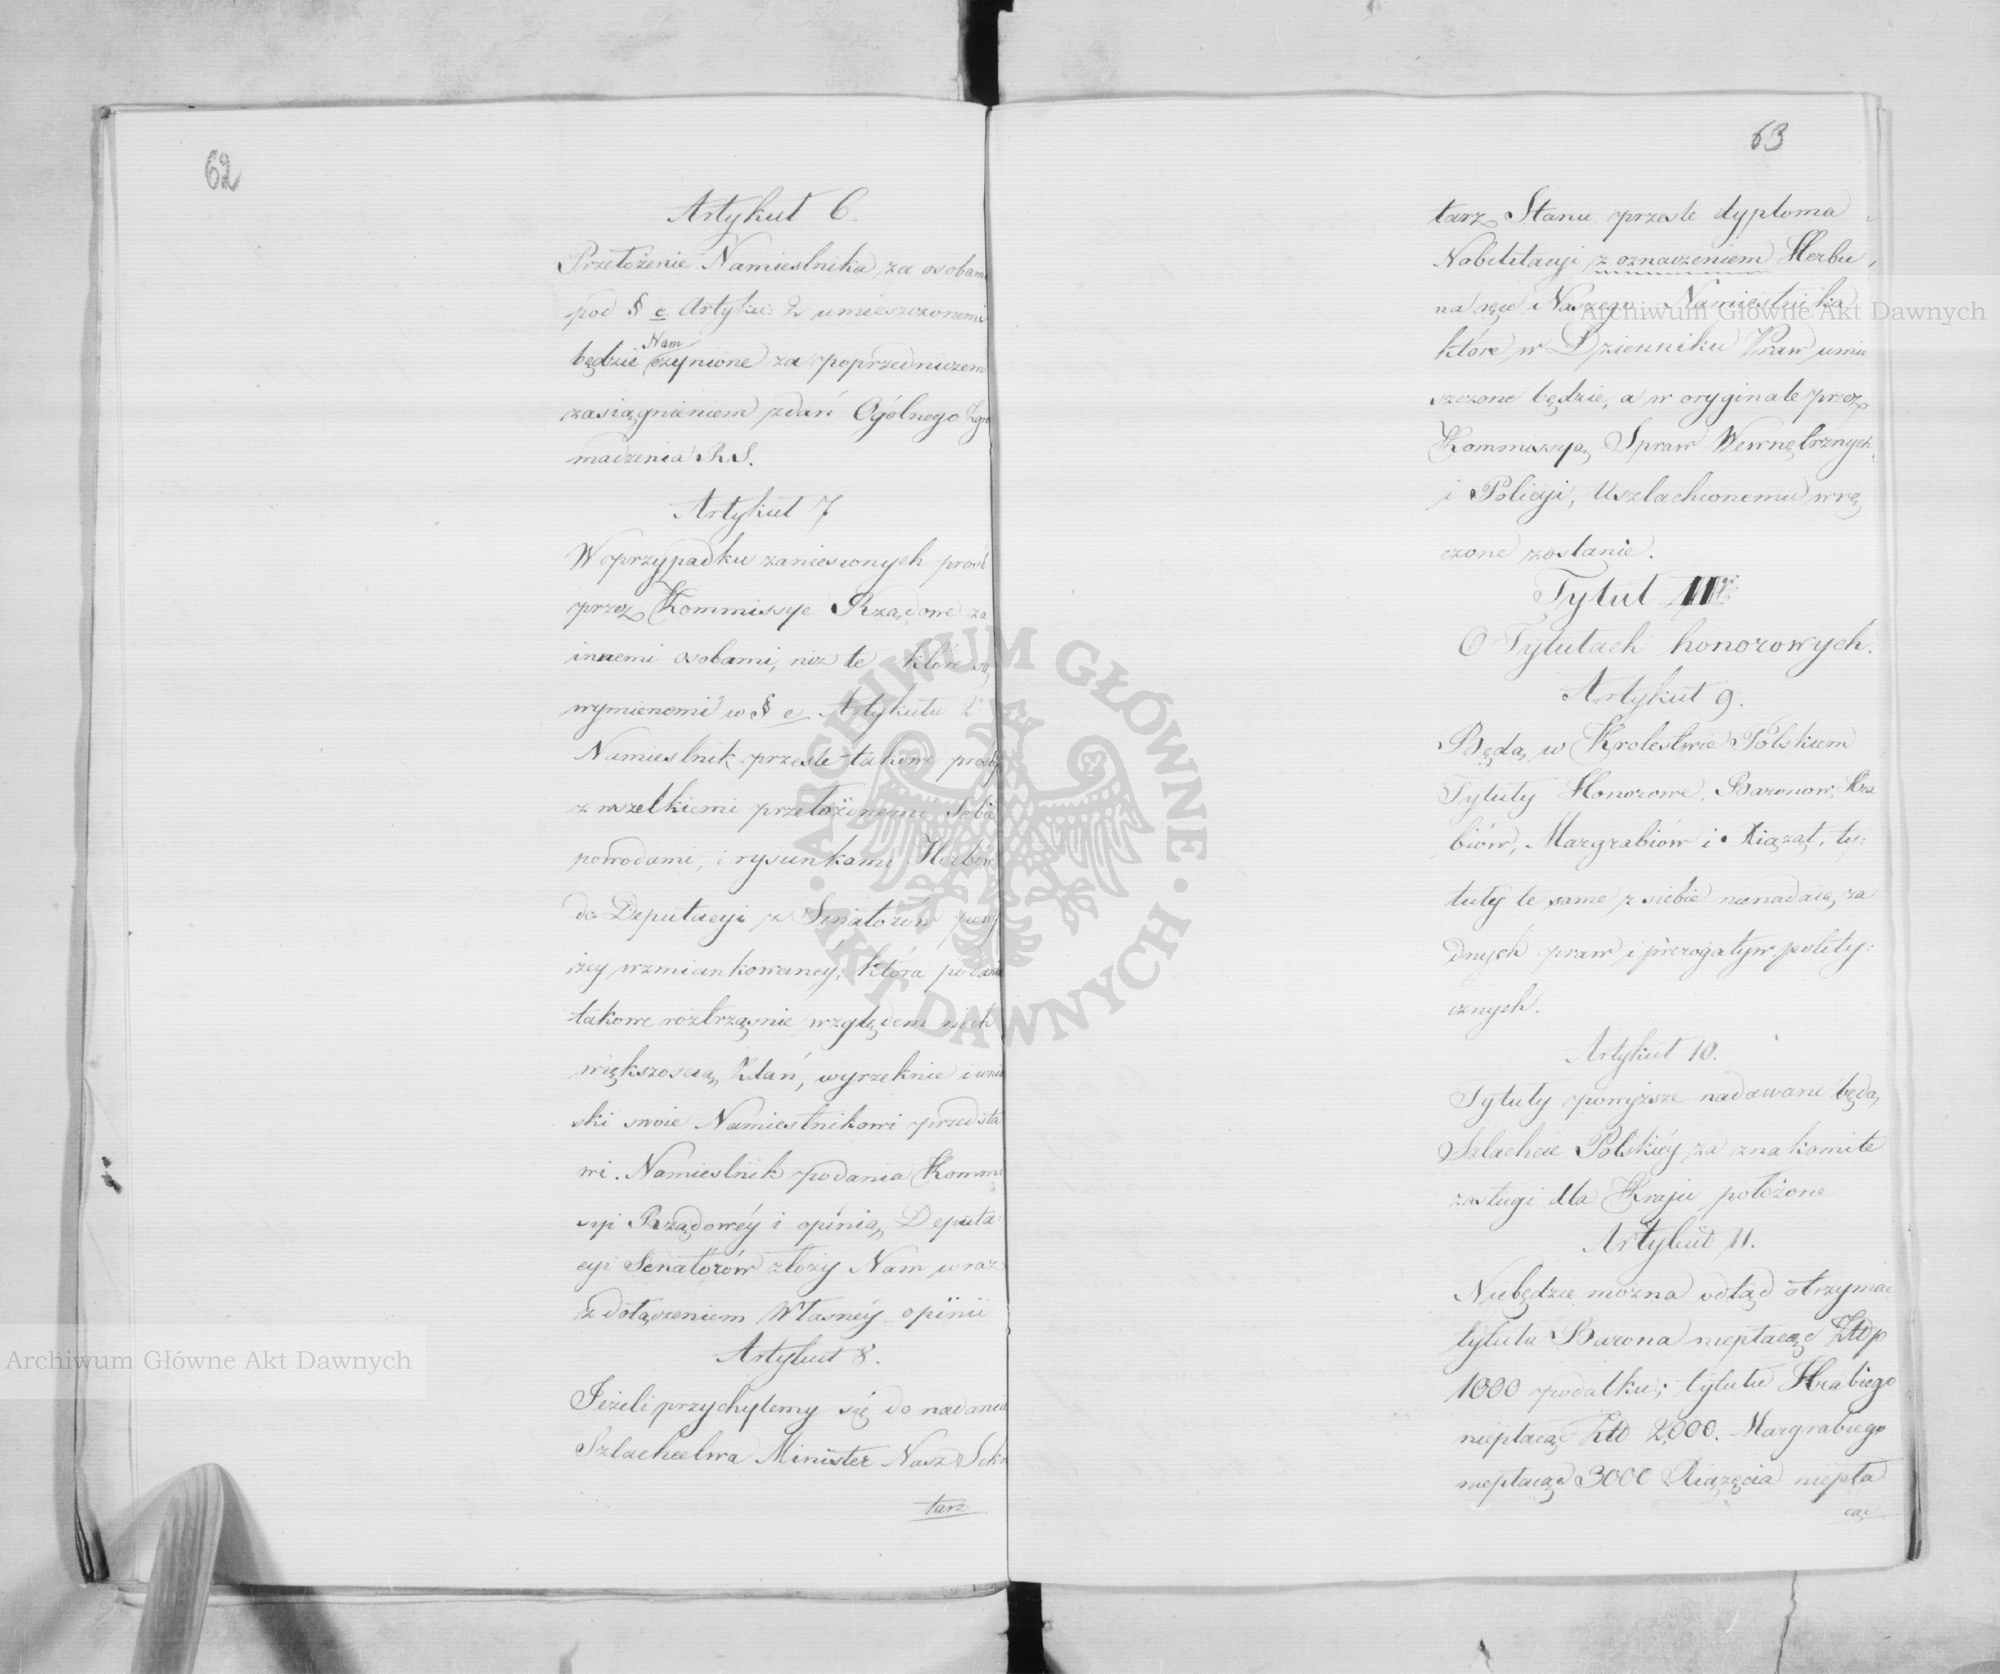 62
Artykuł 6.
Przełożenie Namiestnika za osobam
pod § e Artyku: 2 umieszczonemi
będzie Nam czynione za poprzedniczem
zasiągnieniem zdań Ogólnego Zgro
madzenia R.S.
Artykuł 7
W przypadku zaniesionych prośb
przez Kommissye Rządowe za
innemi osobami, niż te które są
wymienemi w § e Artykułu 2
Namiestnik prześle takowe prośby
z wszelkiemi przełożonemi Sobie
powodami, i rysunkami Herbów
do Deputacyi z Senatorów powy
iżey wzmiankowaney, która podania
takowe roztrząśnie względem nich
większością Zdań, wyrzeknie i wnio
ski swoie Namiestnikowi przedsta
wi. Namiestnik podania Kommi
syi Rządowéy i opinią Deputa
cyi Senatorów złoży Nam wraz
z dołączeniem Własnéy opinii
Artykuł 8.
Jeżeli przychylemy się do nadania
Szlachectwa Minister Nasz Sekr
tarz
63
tarz Stanu prześle dyploma
Nobilitacyi z oznaczeniem Herbu,
na ręce Naszego Namiestnika
które w Dzienniku Praw umie
szczone będzie, a w oryginale przez
Kommissyą Spraw Wewnętrznych
i Policyi, Uszlachconemu wrę
czone zostanie.
Tytuł II
O Tytułach honorowych.
Artykuł 9.
Będą w Krolestwie Polskiem
Tytuły Honorowe, Baronow, Hra
biów, Margrabiów i Xiążąt, ty:
tuły te same z siebie nienadaią ża
dnych praw i prerogatyw polity:
cznych.
Artykuł 10.
Tytuły powyższe nadawane będą
Szlachcie Polskiéy za znakomite
zasługi dla Kraju położone
Artykuł 11.
Niebędzie można odtąd otrzymać
tytułu Barona niepłacąc Złtp
1000 podatku; tytułu Hrabiego
niepłacąc Złt 2,000. Margrabiego
niepłacąc 3000 Xiążęcia niepła
cąc
Archiwum Główne Akt Dawnych
Archiwum Główne Akt Dawnych
ARCHIWUM GŁÓWNE
AKT DAWNYCH